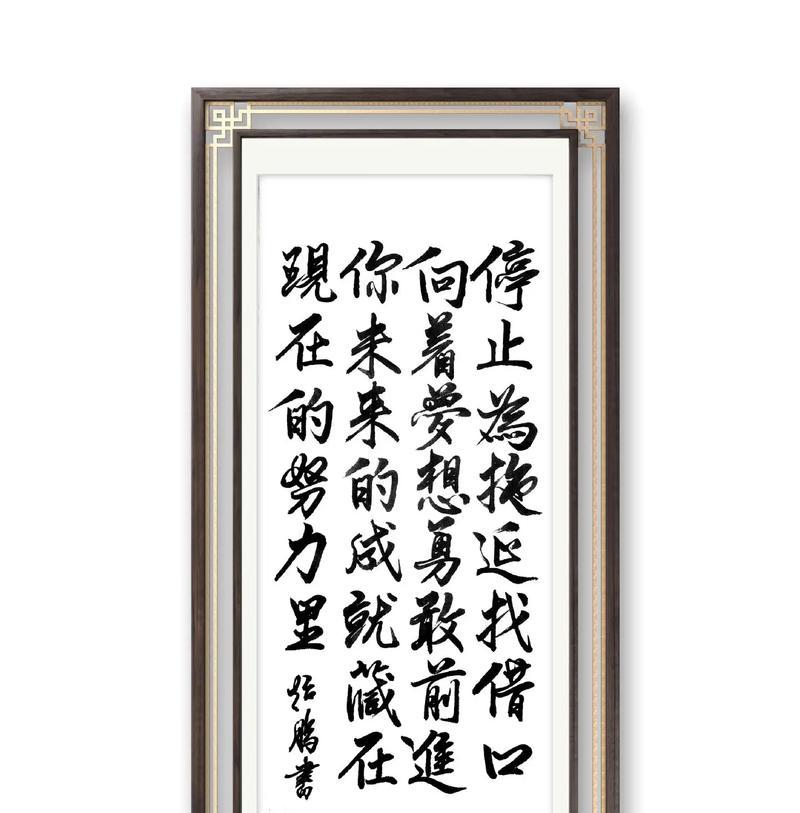 停止為拖延找借口
向着夢想勇敢前進
你未来的成就藏在
現在的努力里
鵬書